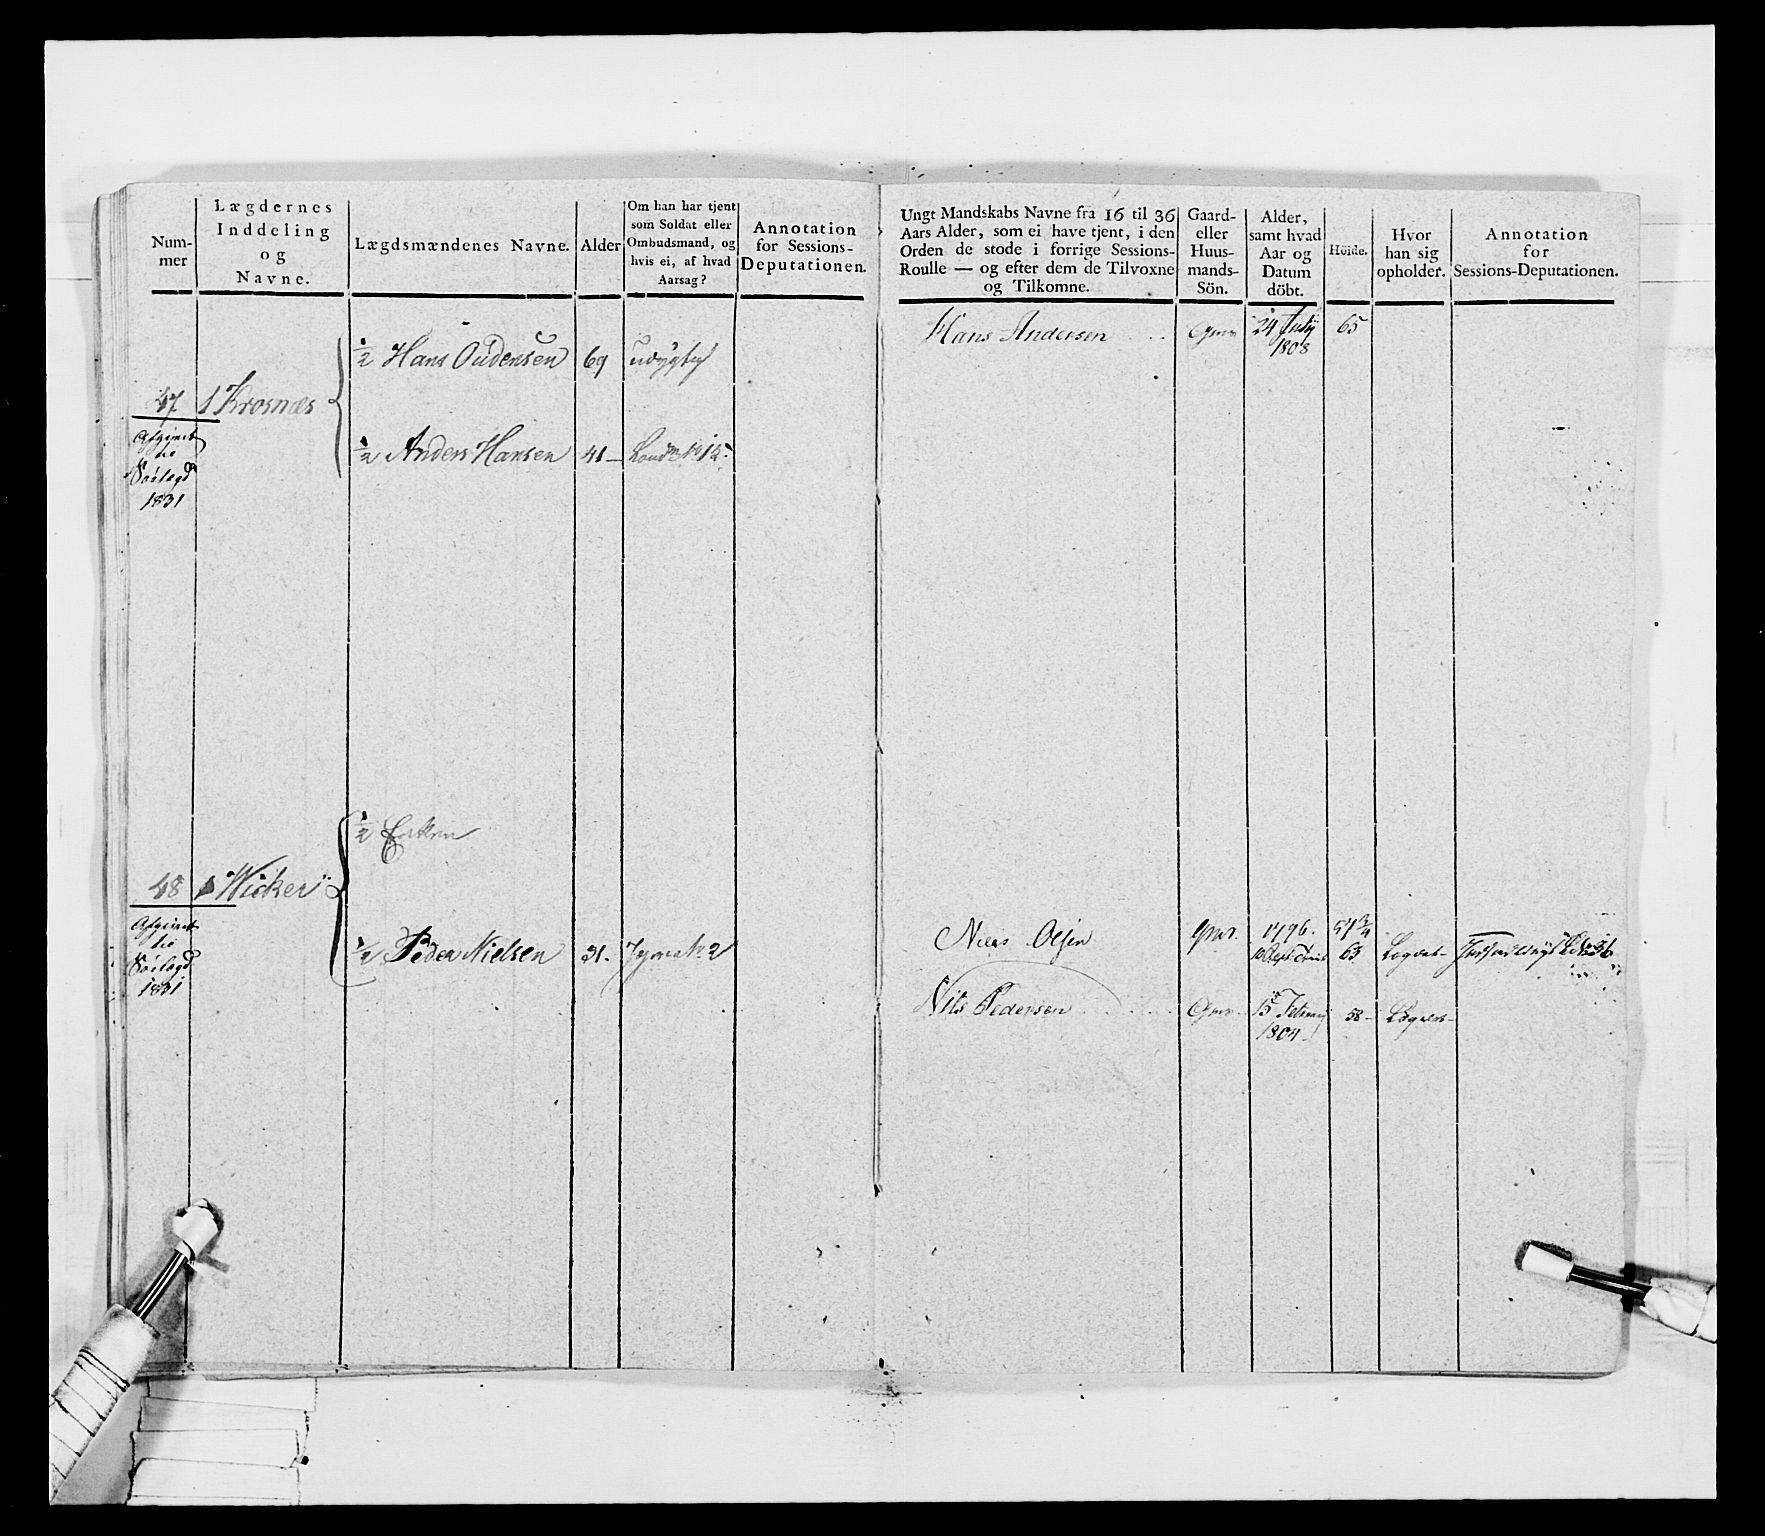 Num-
mer
Lægdernes
Inddeling
og
Navne.
Lægdsmændenes Navne.
Alder
Om han har tjent
som Soldat eller
Ombudsmand, og
hvis ei, af hvad
Aarsag?
Annotation
for Sessions-
Deputationen.
Ungt Mandskabs Navne fra 16 til 36
Aars Alder, som ei have tjent, i den
Orden de stode i forrige Sessions-
Roulle — og efter dem de Tilvoxne
og Tilkomne.
Gaard-
eller
Huus-
mands-
Sön.
Alder,
samt hvad
Aar og
Datum
döbt.
Höide.
Hvor
han sig
opholder.
Annotation
for
Sessions-Deputationen.
½ Hans Oudensen 69 udygtig
47. 1 Krosnæs
Afgivet
til
Söelægd
1831
½ Anders Hansen 41
Hans Andersen Gmr 24 July 65
1808
½ Enken
48 Wicker
Afgivet
til
Söelægd
1831
½ Peder Nielsen 31.
Niels Olsen Gmr. 1796. 57¾
63
Nils Pedersen Gmr. 15 Februarij 58
1804